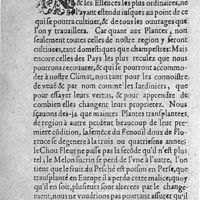 & les Essences les plus ordinaires, ne
ayent esté entendu jusques au point de ce
qui se pourra cultiuer, & de tous les ouurages que
l'on y trauaillera. Car quant aux Plantes, non
seulement toutes celles de nostre region y seront
cultiuées, tant domestiques que champestres: Mais
encore celles des Pays les plus reculés que nous
pourrons recouurer, & qui se pourront accommo-
der à nostre Climat, non tant pour les connoistre
de veuë & par nom comme les Iardiniers, que
pour essayer leurs vertus, & pour apprendre de
combien elles changent leurs proprietez. Nous
sçauons des-ja que maintes Plantes transplantées,
de region à autre perdent beaucoup de leur pre-
miere condition, la semēce du Fenouil doux de Flo-
rence se degenere la trois ou quatriesme année;
le Chou Fleur ne passe pas la secōde qu'il n'est plus
tel; le Melon sucrin se perd de l'vne à l'autre, l'on
tient que le fruit du Pesché est poison en Perse, que
transplanté en Europe il a perdu cette malice; quoy
qu'il en soit, plusieurs sont alterées par le change-
ment, nous ne voudrions pas pourtant asseurer qu'il